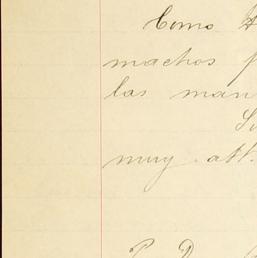 Como
machos
las man
muy att.
P. D.